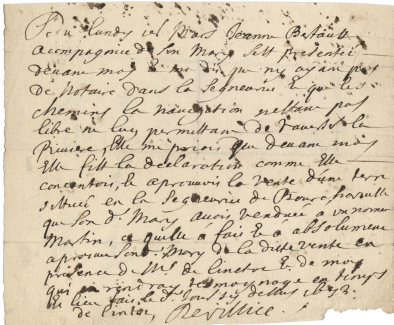 lundy Mars Jeanne Betault
acompagnie de son Mary sest presentée
devant moy et ma dit que ny ayant pas
de Notaire dans la Seigneurie et que les
chemins la navigation nestant pas
libre ne luy permettant de traverser la
Riviere, Elle me prioit que devant moy
Elle fist la declaration comme Elle
concentoit, et aprouvoit la vente d'une terre
situee en la Seigneurie de
que son d. Mary avoit vendue a un nommé
Martin, a quelle a fait et a absolument
aprouve Mary de la ditte vente en
presence de Mr de Linctot et de moy
qui en rendray tesmoignage en temps
et lieu fait le d. jour
de Linctot